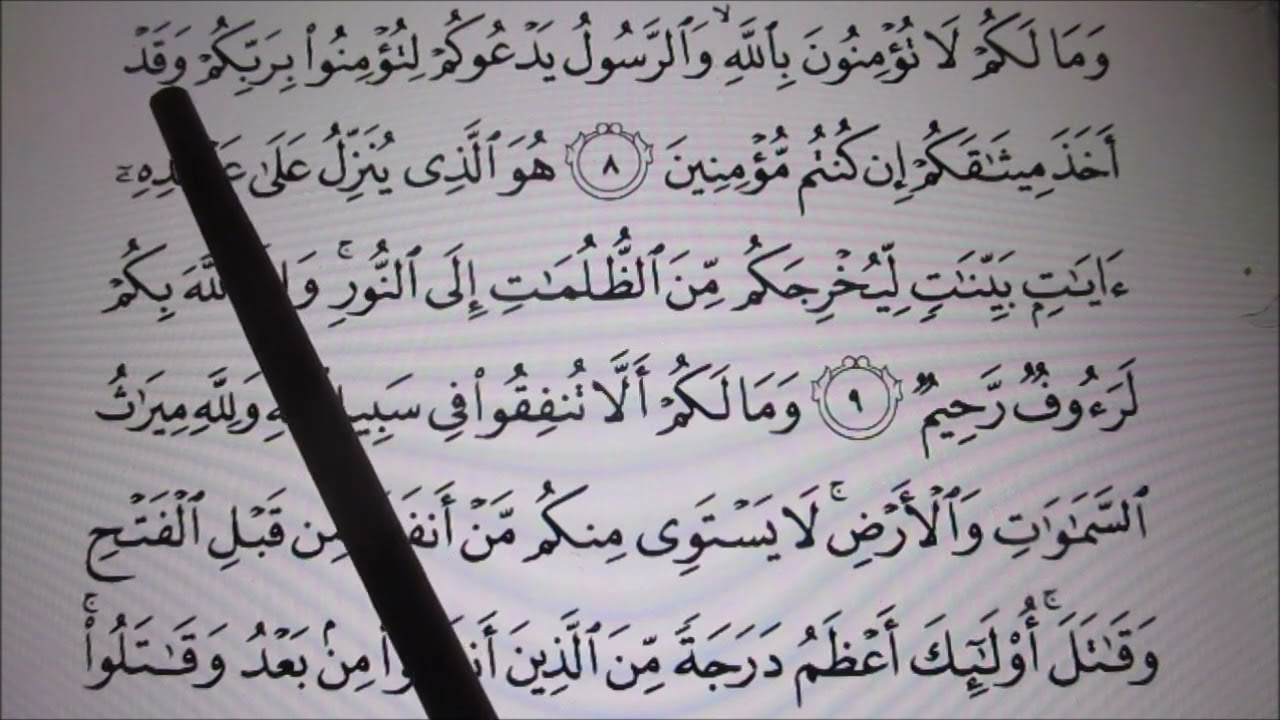 وَمَا لَكُمْ لَا تُؤْمِنُونَ بِٱللَّهِ ۙ وَٱلرَّسُولُ يَدْعُوكُمْ لِتُؤْمِنُوا۟ بِرَبِّكُمْ وَقَدْ
أَخَذَ مِيثَـٰقَكُمْ إِن كُنتُم مُّؤْمِنِينَ ٨ هُوَ ٱلَّذِى يُنَزِّلُ عَلَىٰ عَبْدِهِۦٓ
ءَايَـٰتٍۭ بَيِّنَـٰتٍ لِّيُخْرِجَكُم مِّنَ ٱلظُّلُمَـٰتِ إِلَى ٱلنُّورِ ۚ وَإِنَّ ٱللَّهَ بِكُمْ
لَرَءُوفٌ رَّحِيمٌ ٩ وَمَا لَكُمْ أَلَّا تُنفِقُوا۟ فِى سَبِيلِ ٱللَّهِ وَلِلَّهِ مِيرَٰثُ
ٱلسَّمَـٰوَٰتِ وَٱلْأَرْضِ ۚ لَا يَسْتَوِى مِنكُم مَّنْ أَنفَقَ مِن قَبْلِ ٱلْفَتْحِ
وَقَـٰتَلَ ۚ أُو۟لَـٰٓئِكَ أَعْظَمُ دَرَجَةً مِّنَ ٱلَّذِينَ أَنفَقُوا۟ مِنۢ بَعْدُ وَقَـٰتَلُوا۟ ۚ